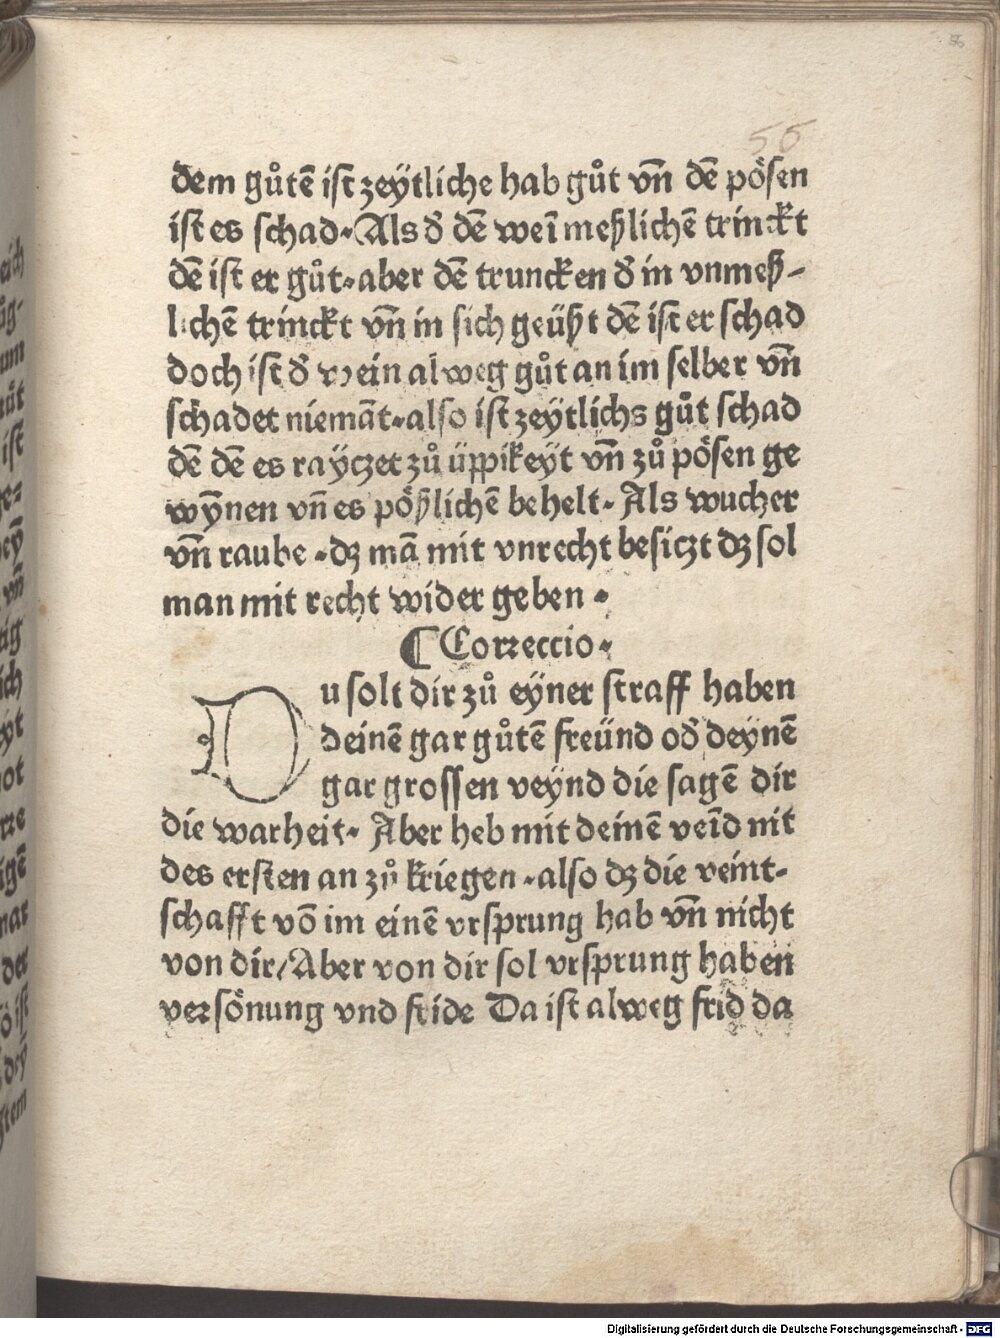 55
dem gůtē ist zeÿtliche hab gůt vn̄ dē pösen
ist es schad. Als đ dē wei meßlichē trinckt
dē ist er gůt. aber dē truncken đ in vnmeß-
lichē trinckt vn̄ in sich geüßt dē ist er schad
doch ist đ wein alweg gůt an im selber vn̄
schadet niemāt. also ist zeÿtlichs gůt schad
dē dē es raÿczet zů üppikeyt vn̄ zů pösen ge
wȳnen vn̄ es pößlichē behelt. Als wucher
vn̄ raube . dz mā mit vnrecht besiczt dz sol
man mit recht wider geben .
¶ Correccio.
Du solt dir zů eÿner straff haben
deinē gar gůtē freünd ođ deÿnē
gar grossen veÿnd die sagē dir
die warheit. Aber heb mit deinē veīd nit
des ersten an zů kriegen . also dz die veint-
schafft vō im einē vrsprung hab vn̄ nicht
von dir/ Aber von dir sol vrsprung haben
versönung vnd fride Da ist alweg frid da
Digitalisierung gefördert durch die Deutsche Forschungsgemeinschaft - DFG